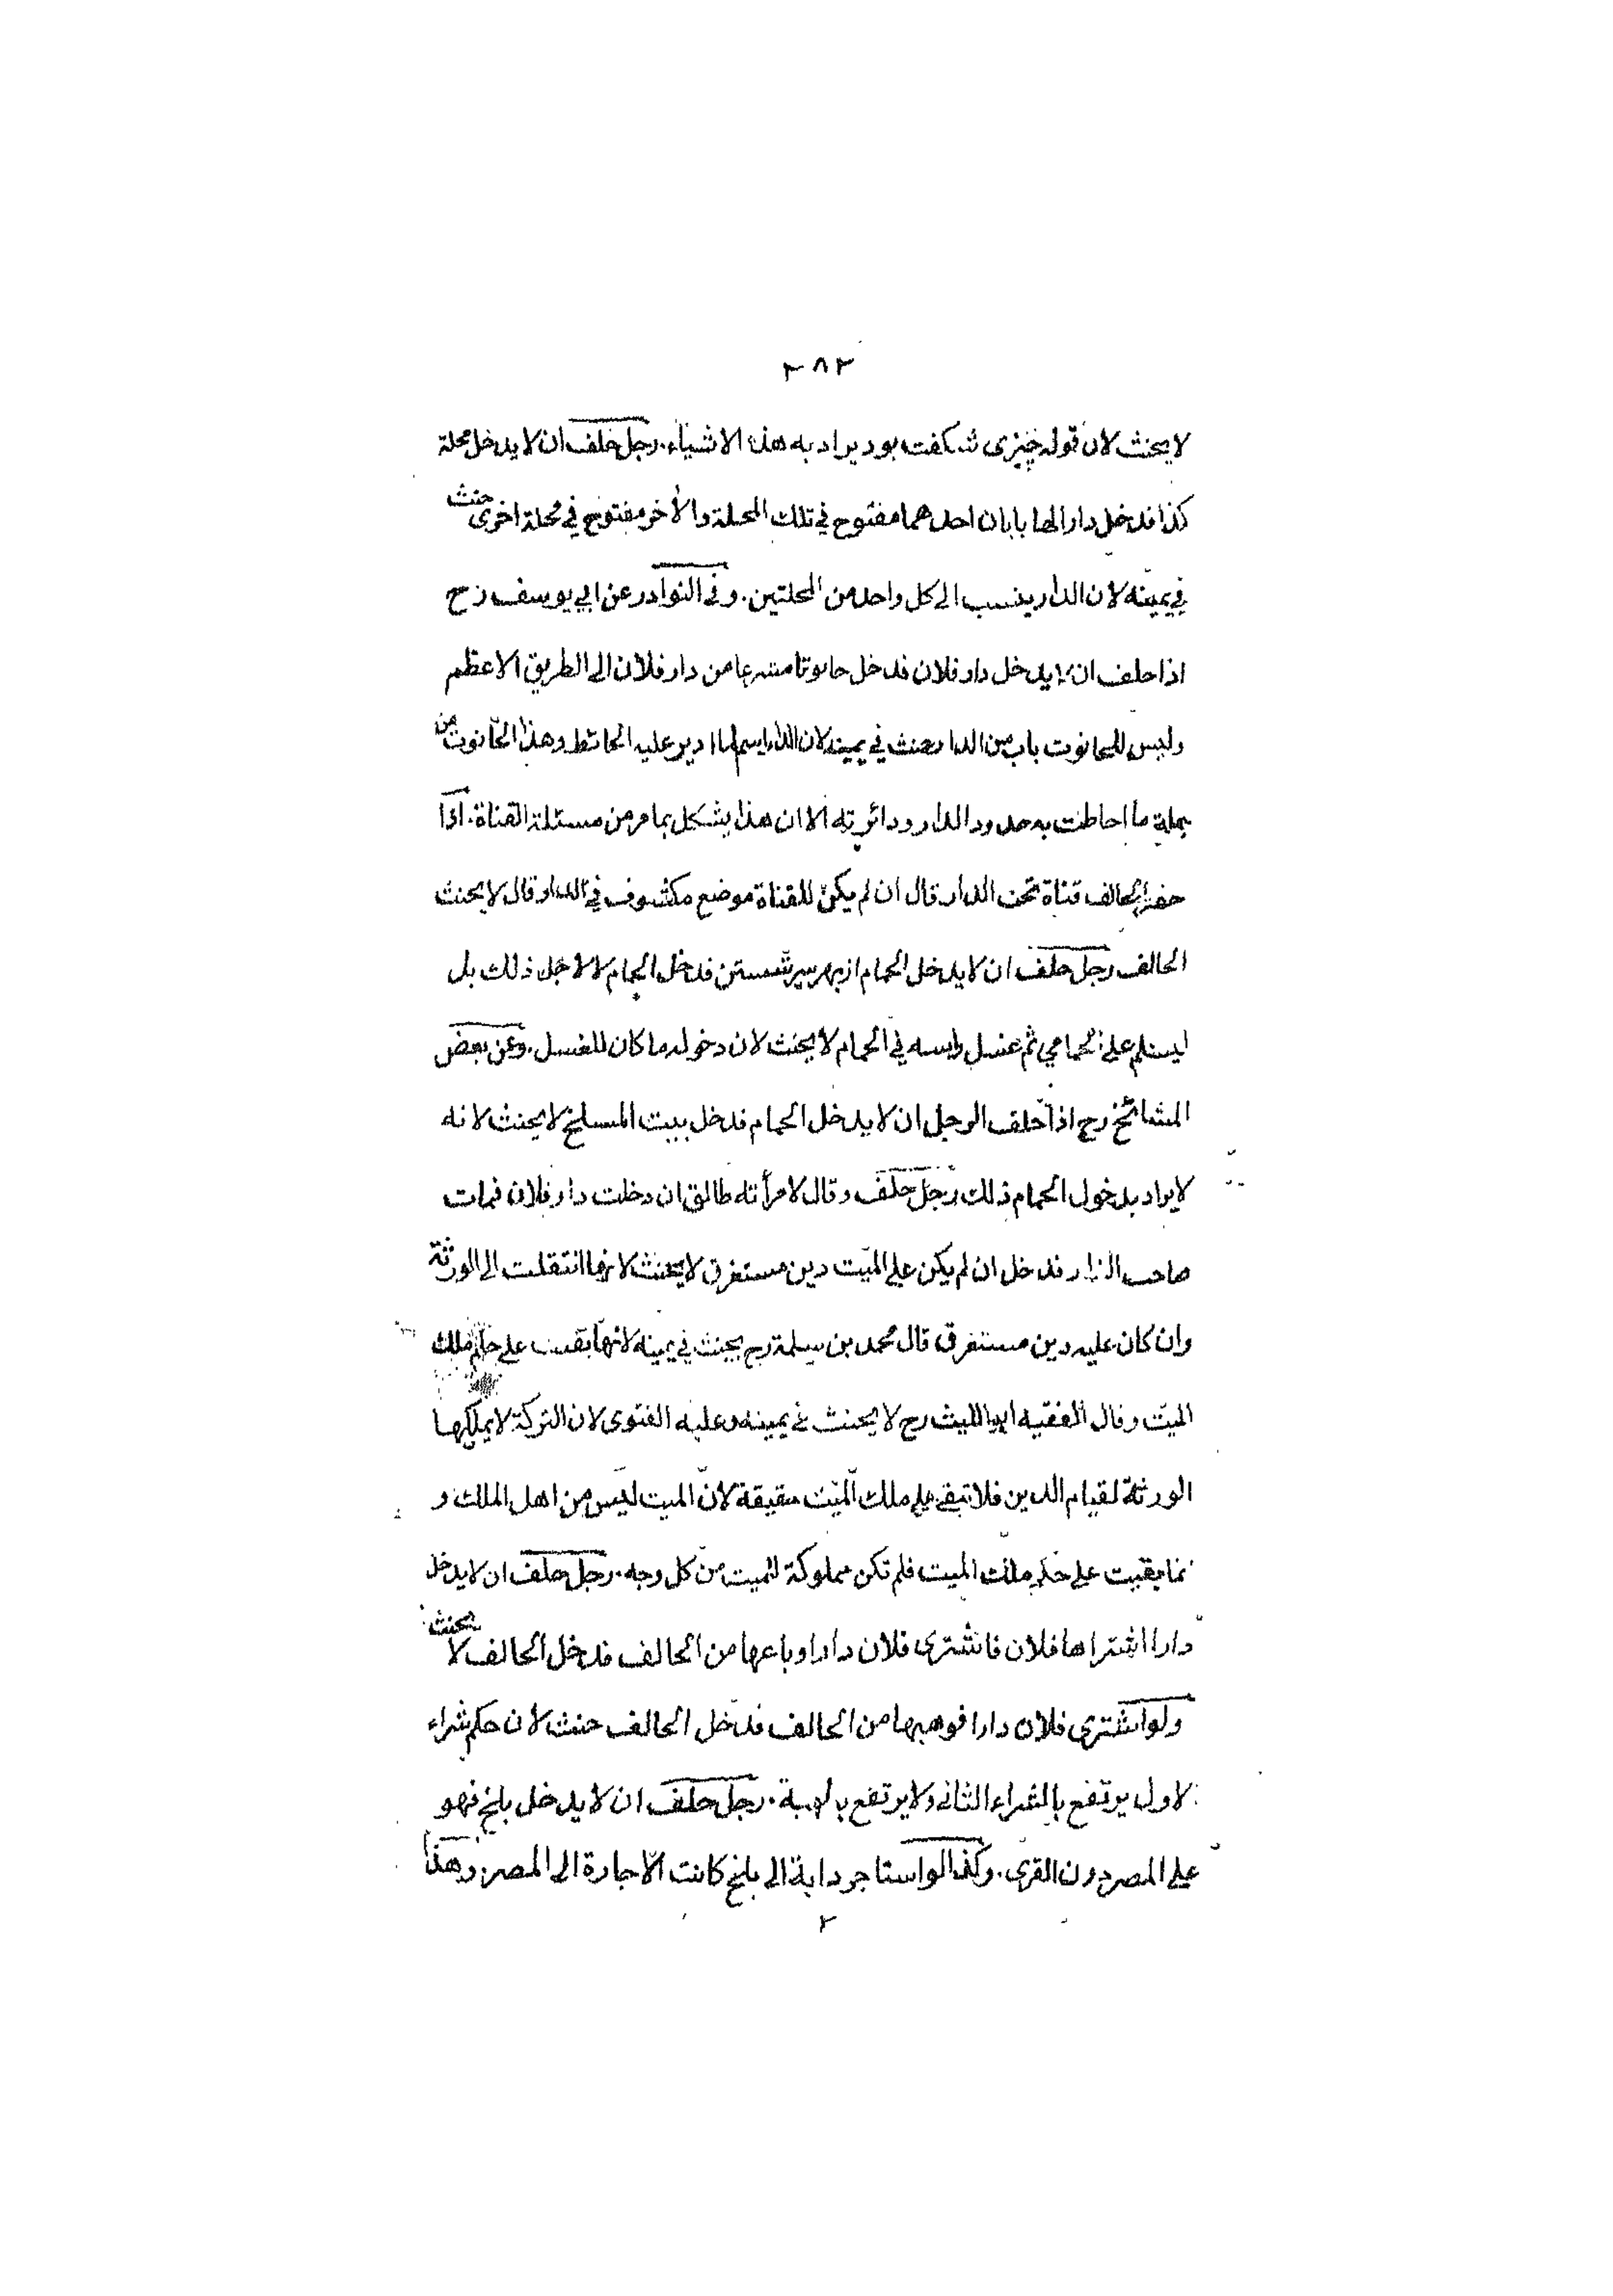 ٢٨٢
لا يحنث لان قوله چيزى شگفت بود يراد به هذه الاشياء. رجل حلف ان لا يدخل محلة
كذا فدخل دارا لها بابان احدهما مفتوح في تلك المحلة والآخر مفتوح في محلة اخرى حنث
في يمينه لان الدار ينسب الى كل واحد من المحلتين. وفي النوادر عن ابي يوسف رح
اذا حلف ان لا يدخل دار فلان فدخل حانوتا مشرعا من دار فلان الى الطريق الاعظم
وليس للحانوت باب من الدار حنث في يمينه لان الدار اسم لما ادير عليه الحائط وهذا الحانوت من
جملة ما احاطت به حدود الدار ودائرته الا ان هذا يشكل بما مر من مسئلة القناة. اذا
حفر الحالف قناة تحت الدار قال ان لم يكن للقناة موضع مكشوف في الدار قال لا يحنث
الحالف رجل حلف ان لا يدخل الحمام از بهر سر شستن فدخل الحمام لا لاجل ذلك بل
ليسلم على الحمامي ثم غسل راسه في الحمام لا يحنث لان دخوله ما كان للغسل. وعن بعض
المشائخ رح اذا حلف الرجل ان لا يدخل الحمام فدخل بيت المسلخ لا يحنث لانه
لا يراد بدخول الحمام ذلك رجل حلف وقال لامرأته طالق ان دخلت دار فلان فمات
صاحب الدار فدخل ان لم يكن على الميت دين مستغرق لا يحنث لانها انتقلت الى الورثة
وان كان عليه دين مستغرق قال محمد بن سلمة رح يحنث في يمينه لانها بقيت على حكم ملك
الميت وقال الفقيه ابو الليث رح لا يحنث في يمينه وعليه الفتوى لان التركة لا يملكها
الورثة لقيام الدين فلا تبقى على ملك الميت حقيقة لان الميت ليس من اهل الملك و
انما بقيت على حكم ملك الميت فلم تكن مملوكة للميت من كل وجه. رجل حلف ان لا يدخل
دارا اشتراها فلان فاشترى فلان دارا وباعها من الحالف فدخل الحالف لا يحنث
ولو اشترى فلان دارا فوهبها من الحالف فدخل الحالف حنث لان حكم شراء
الاول يرتفع بالشراء الثانى ولا يرتفع بالهبة. رجل حلف ان لا يدخل بلخ فهو
على المصر دون القرى. وكذا لو استاجر دابة الى بلخ كانت الاجارة الى المصر. وهذا
٢